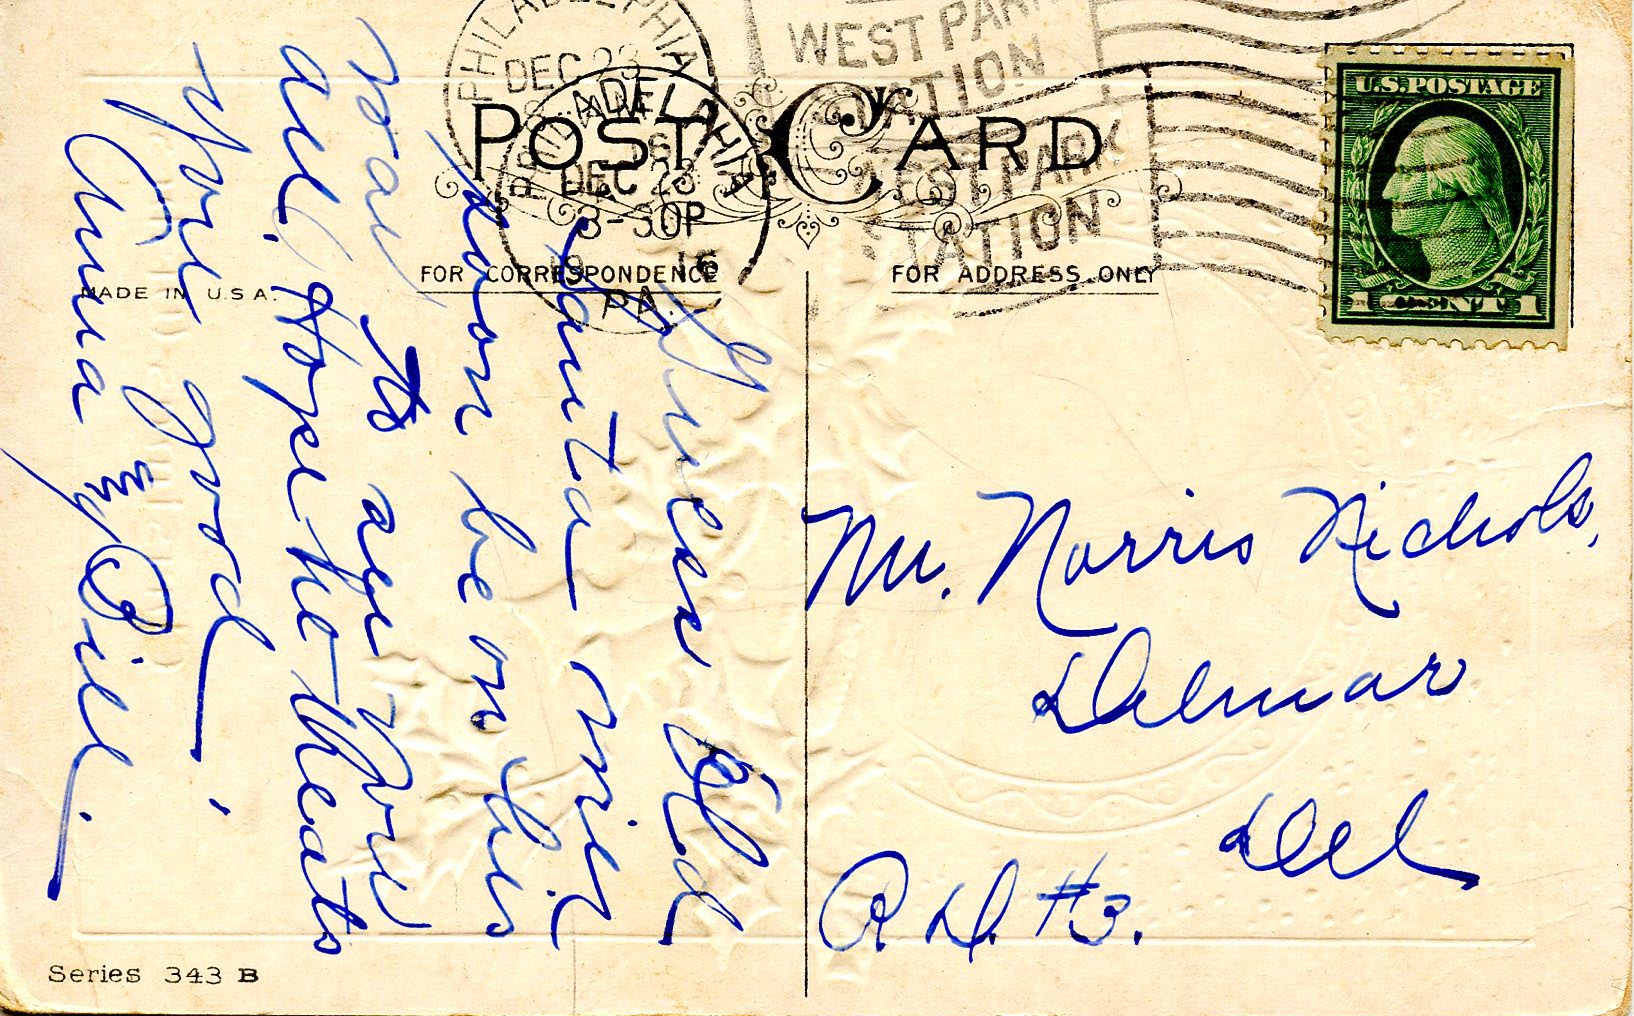 PHILADELPHIA
DEC 23
WEST PARK
STATION
PHILADELPHIA
DEC 23
3-30P
19 16
PA.
WEST PARK
STATION
U.S. POSTAGE
1 CENT 1
POST CARD
FOR CORRESPONDENCE
FOR ADDRESS ONLY
MADE IN U.S.A.
Guess Old
Santa will
soon be on his
way to see you
all. Hope he treats
you good.
Anna & Bill.
Mr. Norris Nichols,
Delmar
Del
R.D. #3.
Series 343 B